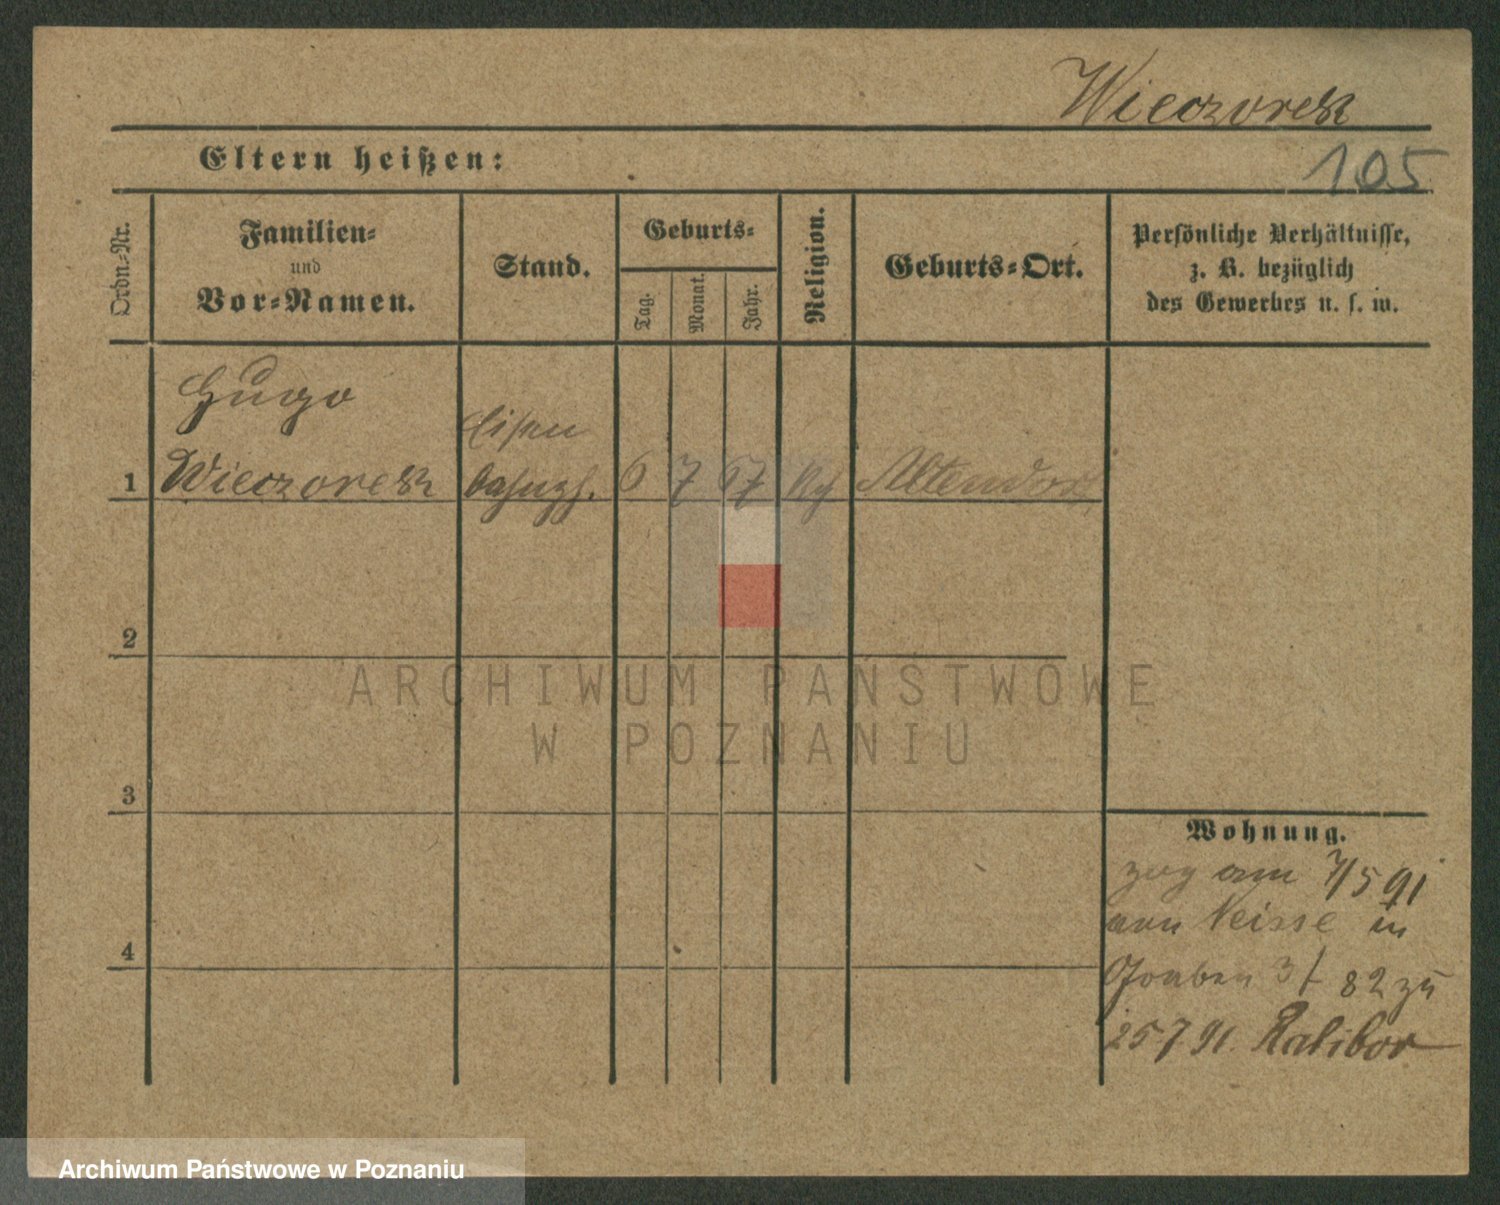 Wieczorek
Eltern heißen:
105
Ordn.-Nr.
Familien-
und
Vor-Namen.
Stand.
Geburts-
Tag.
Monat.
Jahr.
Religion.
Geburts-Ort.
Persönliche Verhältnisse,
z. B. bezüglich
des Gewerbes u. s. w.
Hugo
Eisen
1 Wieczorek bahnzf. 6 7 67 Altendorf
2
ARCHIWUM PAŃSTWOWE
W POZNANIU
3
Wohnung.
zog am 7/5 91
von Neisse in
4
Graben 3 82 zu
25 7 91. Ratibor
Archiwum Państwowe w Poznaniu